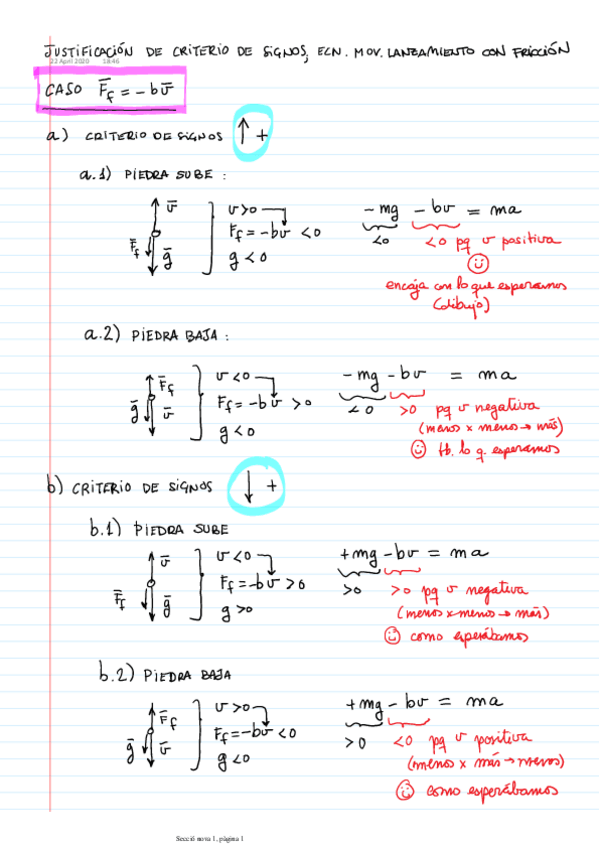 JUSTIFICACIÓN DE CRITERIO DE SIGNOS, ECN. MOV. LANZAMIENTO CON FRICCIÓN
22 April 2020 18:46
CASO F̄f = -bv̄
a) CRITERIO DE SIGNOS ↑ +
a.1) PIEDRA SUBE :
v̄
F̄f
ḡ
v>0
Ff = -bv <0
g<0
-mg -bv = ma
<0 <0 pq v positiva
encaja con lo que esperamos
(dibujo)
a.2) PIEDRA BAJA :
F̄f
ḡ v̄
v<0
Ff = -bv >0
g<0
-mg -bv = ma
<0 >0 pq v negativa
(menos x menos → más)
tb. lo q. esperamos
b) CRITERIO DE SIGNOS ↓ +
b.1) PIEDRA SUBE
v̄
F̄f ḡ
v<0
Ff = -bv >0
g>0
+mg -bv = ma
>0 >0 pq v negativa
(menos x menos → más)
como esperábamos
b.2) PIEDRA BAJA
F̄f
ḡ v̄
v>0
Ff = -bv <0
g<0
+mg - bv = ma
>0 <0 pq v positiva
(menos x más → menos)
como esperábamos
Secció nova 1, pàgina 1